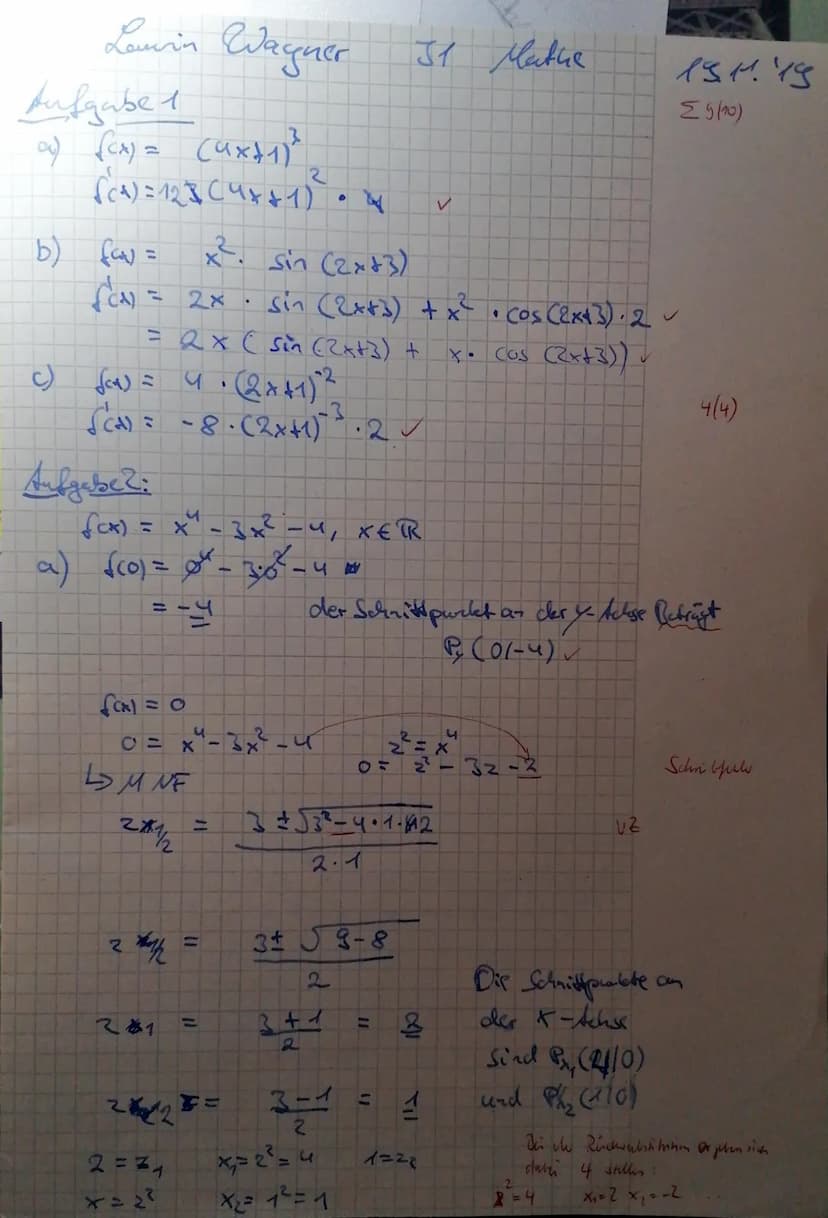 Wagner J1 Mathe 19.11.'19
Σ 9(10)
Aufgabe 1
a) f(x) = (4x+1)³
f'(x) = 12 (4x+1)² ✓
b) f(x) = x² · sin (2x+3)
f'(x) = 2x · sin (2x+3) + x² · cos(2x+3) · 2 ✓
= 2x ( sin (2x+3) + x · cos (2x+3)) ✓
c) f(x) = 4 · (2x+1)⁻²
f'(x) = -8 · (2x+1)⁻³ · 2 ✓
4(4)
Aufgabe 2:
f(x) = x⁴ - 3x² - 4, x ∈ ℝ
a) f(0) = 0⁴ - 3·0² - 4
= -4 der Schnittpunkt an der y-Achse beträgt
Py (0|-4) ✓
f(x) = 0
0 = x⁴ - 3x² - 4 z² = x⁴
0 = z² - 3z - 2
↳ MNF
z1/2 = 3 ± √3² - 4·1·2
2·1
VZ
z1/2 = 3 ± √9-8
2
Die Schnittpunkte an
z1 = 3+1 / 2 = 2 der x-Achse
sind Px₁ (4|0)
z2 = 3-1 / 2 = 1 und Px₂ (1|0)
2 = z₁ x₁ = 2² = 4 1 = z₂
x = z² x₂ = 1² = 1
Bei der Rücksubstitution ergeben sich
dabei 4 Stellen:
x² = 4 x₁ = 2 x₁ = -2 ...